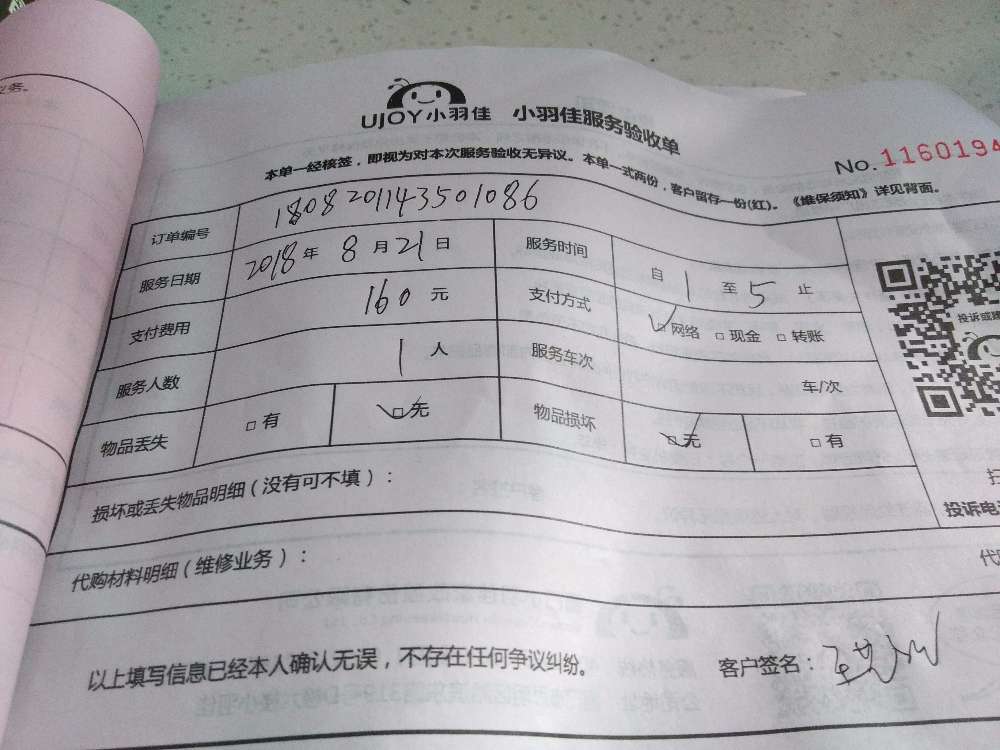 义务。
UJOY小羽佳 小羽佳服务验收单
No. 1160194
本单一经核签，即视为对本次服务验收无异议。本单一式两份，客户留存一份(红)。《维保须知》详见背面。
订单编号 1808201143501086
服务日期 2018年 8月21日 服务时间 自 1 至 5 止
支付费用 160 元 支付方式 ☑网络 □现金 □转账
服务人数 1 人 服务车次 车/次
物品丢失 □有 ☑无 物品损坏 ☑无 □有
损坏或丢失物品明细（没有可不填）：
代购材料明细（维修业务）：
以上填写信息已经本人确认无误，不存在任何争议纠纷。 客户签名：
投诉或建
扫
投诉电
代